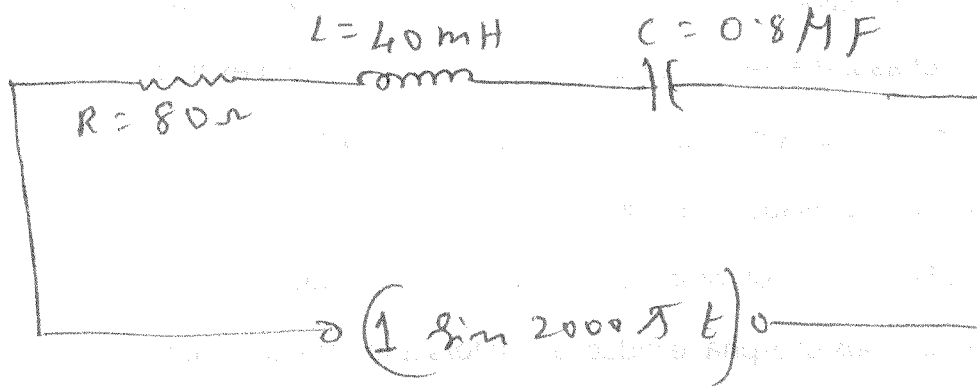 L = 40 mH
C = 0.8 μF
R = 80 Ω
(1 sin 2000 π t)